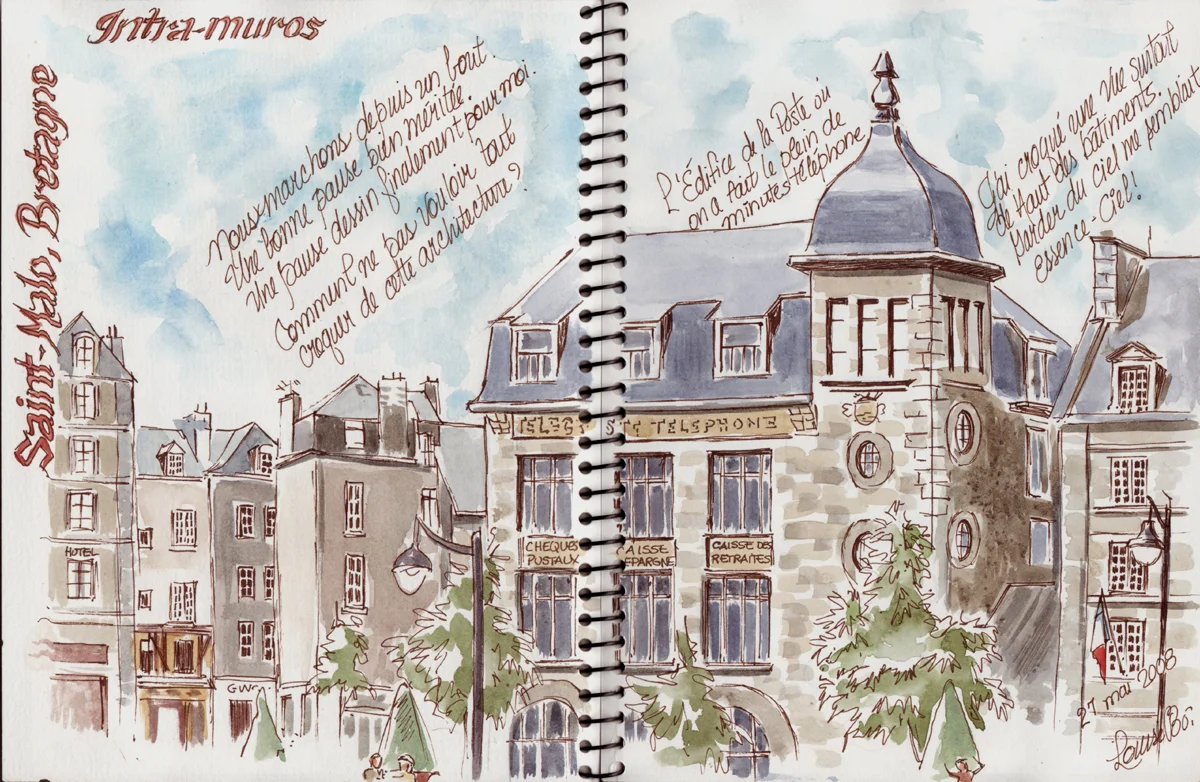 Intra-muros
Saint-Malo, Bretagne
Nous marchons depuis un bout.
Une bonne pause bien méritée.
Une pause dessin finalement pour moi.
Comment ne pas vouloir tout
croquer de cette architecture?
L'Édifice de la Poste où
on a fait le plein de
minutes-téléphone
J'ai croqué une vue surtout
de haut des bâtiments.
Garder du ciel me semblait
essence-Ciel!
TELEGR STE TELEPHONE
CHÉQUES
POSTAUX
AISSE
EPARGNE
CAISSE DES
RETRAITES
HOTEL
27 mai 2008